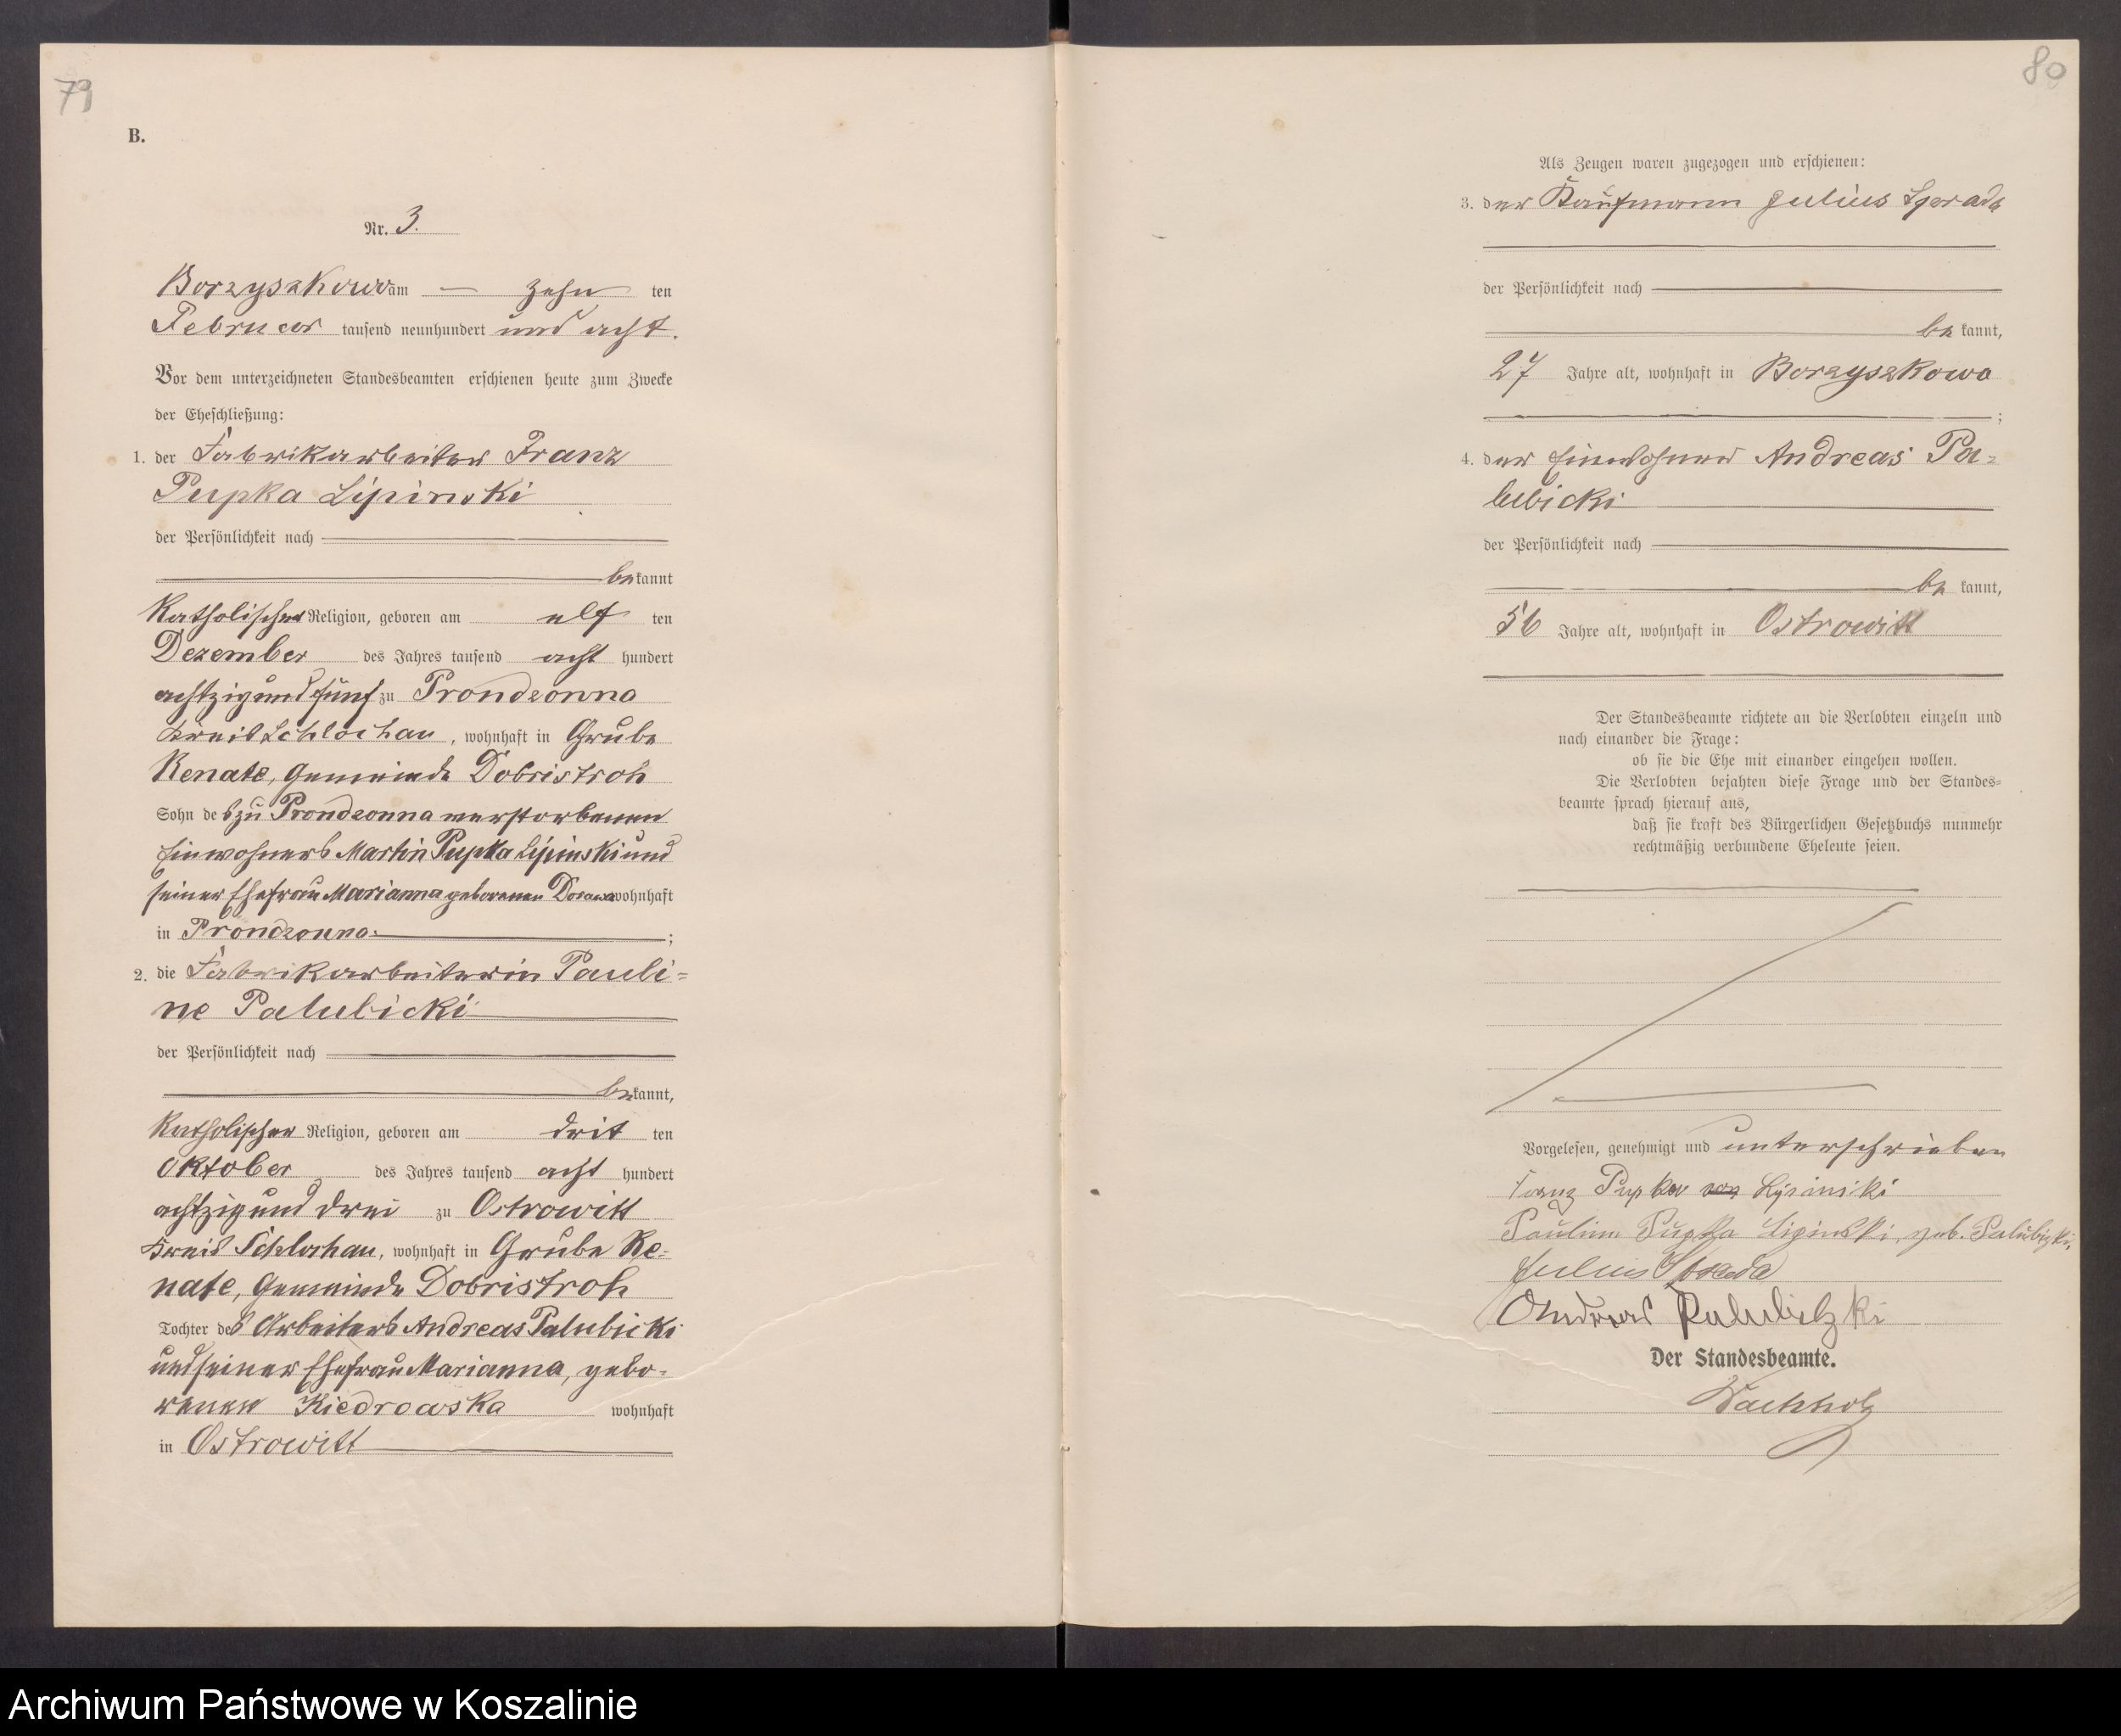 79
B.
Nr. 3.
Borzyszkowo am — zehn ten
Februar tausend neunhundert und acht.
Vor dem unterzeichneten Standesbeamten erschienen heute zum Zwecke
der Eheschließung:
1. der Fabrikarbeiter Franz
Pupka Lipinski
der Persönlichkeit nach
be kannt
Katholischer Religion, geboren am elf ten
Dezember des Jahres tausend acht hundert
achtzig und fünf zu Prondzonna
Kreis Schlochau, wohnhaft in Grube
Renate, Gemeinde Dobristroh
Sohn des zu Prondzonna verstorbenen
Einwohners Martin Pupka Lipinski und
seiner Ehefrau Marianna geborenen wohnhaft
in Prondzonna. ;
2. die Fabrikarbeiterin Pauli=
ne Palubicki
der Persönlichkeit nach
be kannt,
Katholischer Religion, geboren am drit ten
Oktober des Jahres tausend acht hundert
achtzig und drei zu Ostrowitt
Kreis Schlochau, wohnhaft in Grube Re=
nate, Gemeinde Dobristroh
Tochter des Arbeiters Andreas Palubicki
und seiner Ehefrau Marianna, gebo=
renen Kiedrowska wohnhaft
in Ostrowitt
80
Als Zeugen waren zugezogen und erschienen:
3. der Kaufmann Julius
der Persönlichkeit nach
be kannt,
27 Jahre alt, wohnhaft in Borzyszkowo
;
4. der Einwohner Andreas Pa=
lubicki
der Persönlichkeit nach
be kannt,
56 Jahre alt, wohnhaft in Ostrowitt
Der Standesbeamte richtete an die Verlobten einzeln und
nach einander die Frage:
ob sie die Ehe mit einander eingehen wollen.
Die Verlobten bejahten diese Frage und der Standes=
beamte sprach hierauf aus,
daß sie kraft des Bürgerlichen Gesetzbuchs nunmehr
rechtmäßig verbundene Eheleute seien.
Vorgelesen, genehmigt und unterschrieben
Franz Pupka Lipinski
Pauline Pupka Lipinski, geb. Palubizki,
Julius
Andreas Palubitzki
Der Standesbeamte.
Wachholz
Archiwum Państwowe w Koszalinie